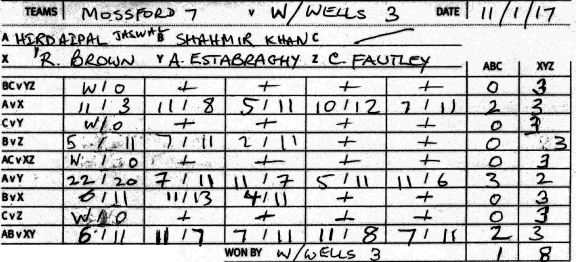 TEAMS MOSSFORD 7 v W/WELLS 3 DATE 11/1/17
A HIRDAIPAL JASWAL B SHAHMIR KHAN C
X R. BROWN Y A. ESTABRAGHY Z C. FAUTLEY ABC XYZ
BCvYZ W/O + + + + 0 3
AvX 11/3 11/8 5/11 10/12 7/11 2 3
CvY W/O + + + + 0 3
BvZ 5/11 7/11 2/11 + + 0 3
ACvXZ W/O + + + + 0 3
AvY 22/20 7/11 11/7 5/11 11/6 3 2
BvX 6/11 11/13 4/11 + + 0 3
CvZ W/O + + + + 0 3
ABvXY 6/11 11/7 7/11 11/8 7/11 2 3
WON BY W/WELLS 3 1 8